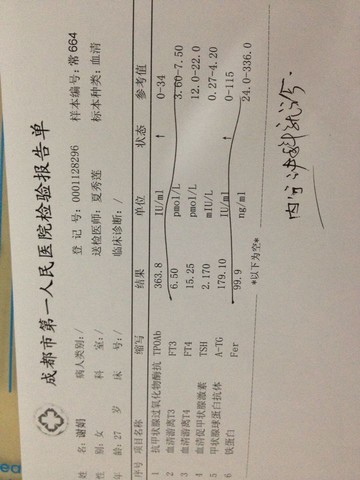 成都市第一人民医院检验报告单
姓 名: 谢娟 病人类别:/ 登 记 号: 0001128296 样本编号: 常664
性 别: 女 科 室:/ 送检医师: 夏秀莲 标本种类: 血清
年 龄: 27 岁 床 号:/ 临床诊断: /
序号 项目名称 缩写 结果 单位 状态 参考值
1 抗甲状腺过氧化物酶抗 TPOAb 363.8 IU/ml ↑ 0-34
2 血清游离T3 FT3 6.50 pmol/L 3.60-7.50
3 血清游离T4 FT4 15.25 pmol/L 12.0-22.0
4 血清促甲状腺激素 TSH 2.170 mIU/L 0.27-4.20
5 甲状腺球蛋白抗体 A-TG 179.10 IU/ml ↑ 0-115
6 铁蛋白 Fer 99.9 ng/ml 24.0-336.0
*以下为空*
内分泌科就诊.